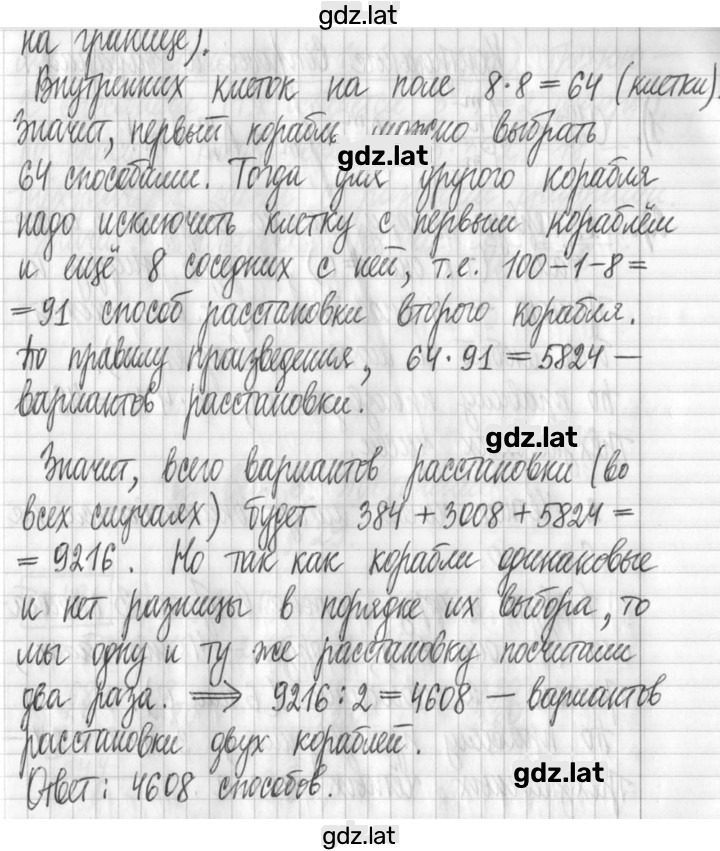 gdz.lat
на границе).
Внутренних клеток на поле 8·8=64 (клетки).
Значит, первый корабль можно выбрать
gdz.lat
64 способами. Тогда для другого корабля
надо исключить клетку с первым кораблём
и ещё 8 соседних с ней, т.е. 100-1-8=
=91 способ расстановки второго корабля.
По правилу произведения, 64·91=5824 —
вариантов расстановки.
gdz.lat
Значит, всего вариантов расстановки (во
всех случаях) будет 384+3008+5824=
=9216. Но так как корабли одинаковые
и нет разницы в порядке их выбора, то
мы одну и ту же расстановку посчитали
два раза. ⟹ 9216:2=4608 — вариантов
расстановки двух кораблей.
gdz.lat
Ответ: 4608 способов.
gdz.lat